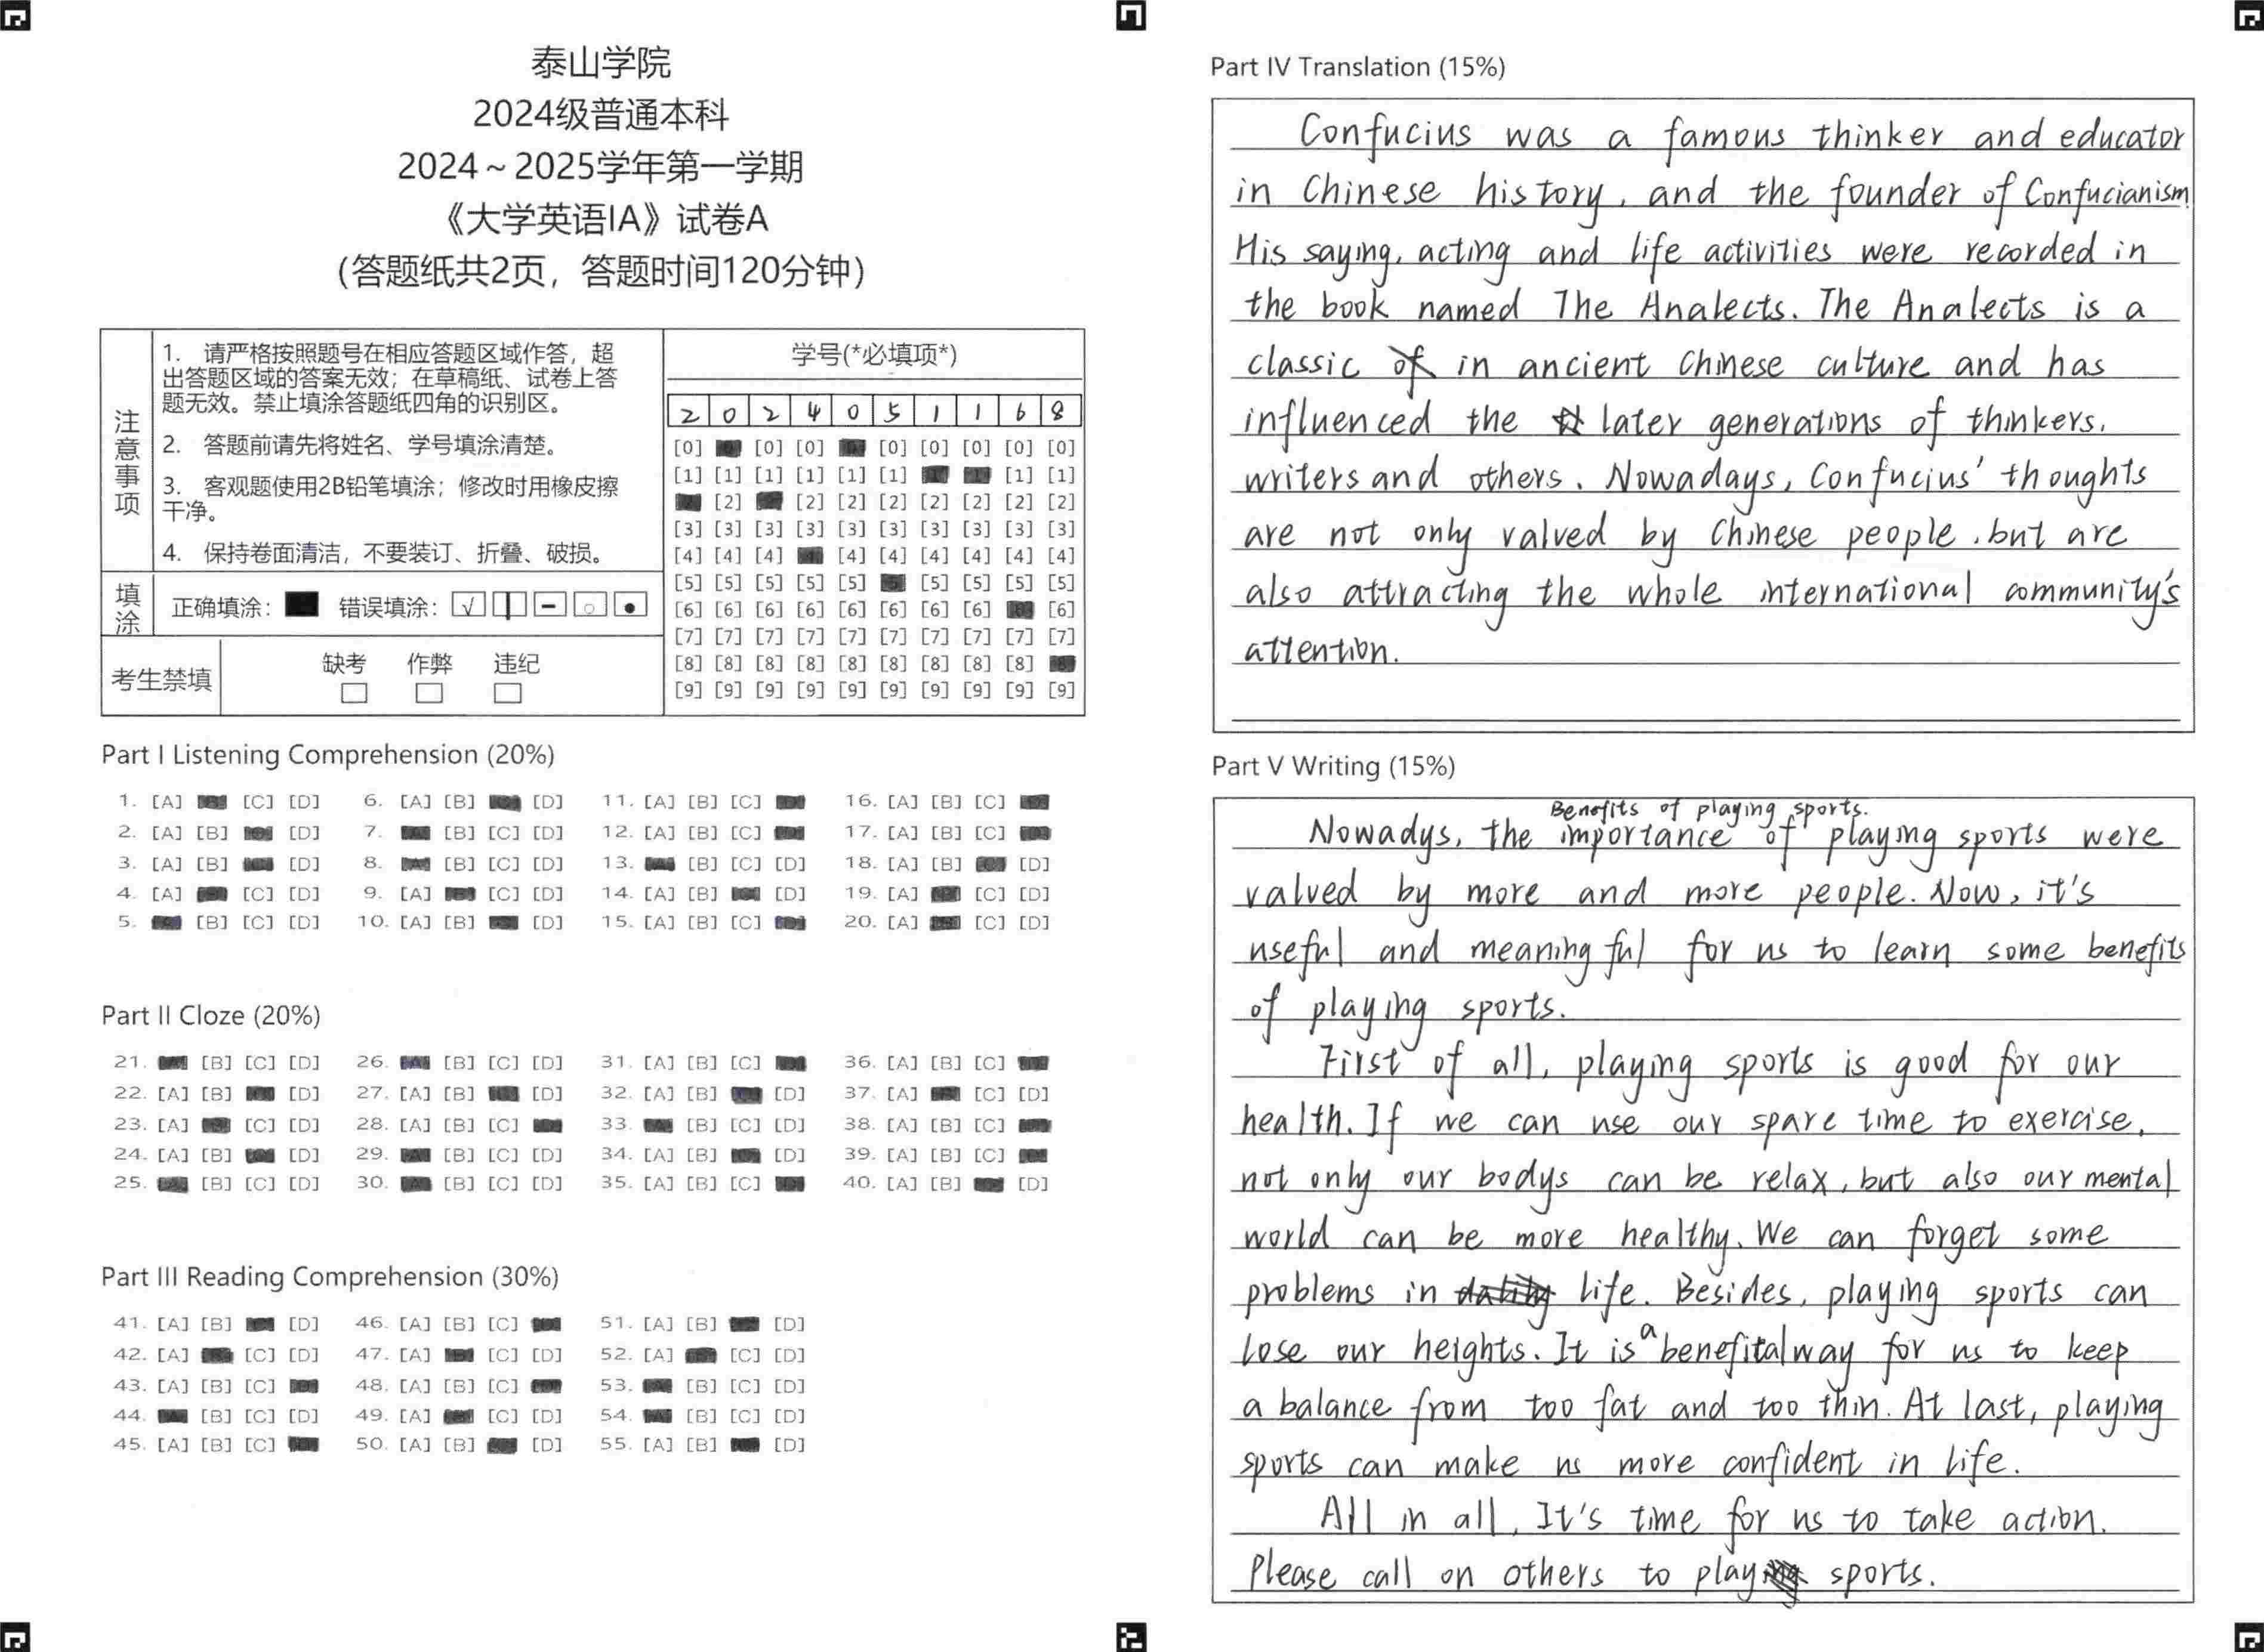 泰山学院
2024级普通本科
2024～2025学年第一学期
《大学英语IA》试卷A
（答题纸共2页，答题时间120分钟）
注意事项
1. 请严格按照题号在相应答题区域作答，超
出答题区域的答案无效；在草稿纸、试卷上答
题无效。禁止填涂答题纸四角的识别区。
2. 答题前请先将姓名、学号填涂清楚。
3. 客观题使用2B铅笔填涂；修改时用橡皮擦
干净。
4. 保持卷面清洁，不要装订、折叠、破损。
填涂
正确填涂： 错误填涂：
考生禁填
缺考 作弊 违纪
学号(*必填项*)
2 0 2 4 0 5 1 1 6 8
[0] [0] [0] [0] [0] [0] [0] [0]
[1] [1] [1] [1] [1] [1] [1] [1]
[2] [2] [2] [2] [2] [2] [2] [2]
[3] [3] [3] [3] [3] [3] [3] [3] [3] [3]
[4] [4] [4] [4] [4] [4] [4] [4] [4]
[5] [5] [5] [5] [5] [5] [5] [5] [5]
[6] [6] [6] [6] [6] [6] [6] [6] [6]
[7] [7] [7] [7] [7] [7] [7] [7] [7] [7]
[8] [8] [8] [8] [8] [8] [8] [8] [8]
[9] [9] [9] [9] [9] [9] [9] [9] [9] [9]
Part I Listening Comprehension (20%)
1. [A] [C] [D] 6. [A] [B] [D] 11. [A] [B] [C] 16. [A] [B] [C]
2. [A] [B] [D] 7. [B] [C] [D] 12. [A] [B] [C] 17. [A] [B] [C]
3. [A] [B] [D] 8. [B] [C] [D] 13. [B] [C] [D] 18. [A] [B] [D]
4. [A] [C] [D] 9. [A] [C] [D] 14. [A] [B] [D] 19. [A] [C] [D]
5. [B] [C] [D] 10. [A] [B] [D] 15. [A] [B] [C] 20. [A] [C] [D]
Part II Cloze (20%)
21. [B] [C] [D] 26. [B] [C] [D] 31. [A] [B] [C] 36. [A] [B] [C]
22. [A] [B] [D] 27. [A] [B] [D] 32. [A] [B] [D] 37. [A] [C] [D]
23. [A] [C] [D] 28. [A] [B] [C] 33. [B] [C] [D] 38. [A] [B] [C]
24. [A] [B] [D] 29. [B] [C] [D] 34. [A] [B] [D] 39. [A] [B] [C]
25. [B] [C] [D] 30. [B] [C] [D] 35. [A] [B] [C] 40. [A] [B] [D]
Part III Reading Comprehension (30%)
41. [A] [B] [D] 46. [A] [B] [C] 51. [A] [B] [D]
42. [A] [C] [D] 47. [A] [C] [D] 52. [A] [C] [D]
43. [A] [B] [C] 48. [A] [B] [C] 53. [B] [C] [D]
44. [B] [C] [D] 49. [A] [C] [D] 54. [B] [C] [D]
45. [A] [B] [C] 50. [A] [B] [D] 55. [A] [B] [D]
Part IV Translation (15%)
Confucius was a famous thinker and educator
in Chinese history, and the founder of Confucianism.
His saying, acting and life activities were recorded in
the book named The Analects. The Analects is a
classic of in ancient Chinese culture and has
influenced the later generations of thinkers,
writers and others. Nowadays, Confucius' thoughts
are not only valved by Chinese people, but are
also attracting the whole international community's
attention.
Part V Writing (15%)
Benefits of playing sports.
Nowadys, the importance of playing sports were
valved by more and more people. Now, it's
useful and meaningful for us to learn some benefits
of playing sports.
First of all, playing sports is good for our
health. If we can use our spare time to exercise,
not only our bodys can be relax, but also our mental
world can be more healthy. We can forget some
problems in life. Besides, playing sports can
lose our heights. It is a benefital way for us to keep
a balance from too fat and too thin. At last, playing
sports can make us more confident in life.
All in all, It's time for us to take action.
Please call on others to play sports.